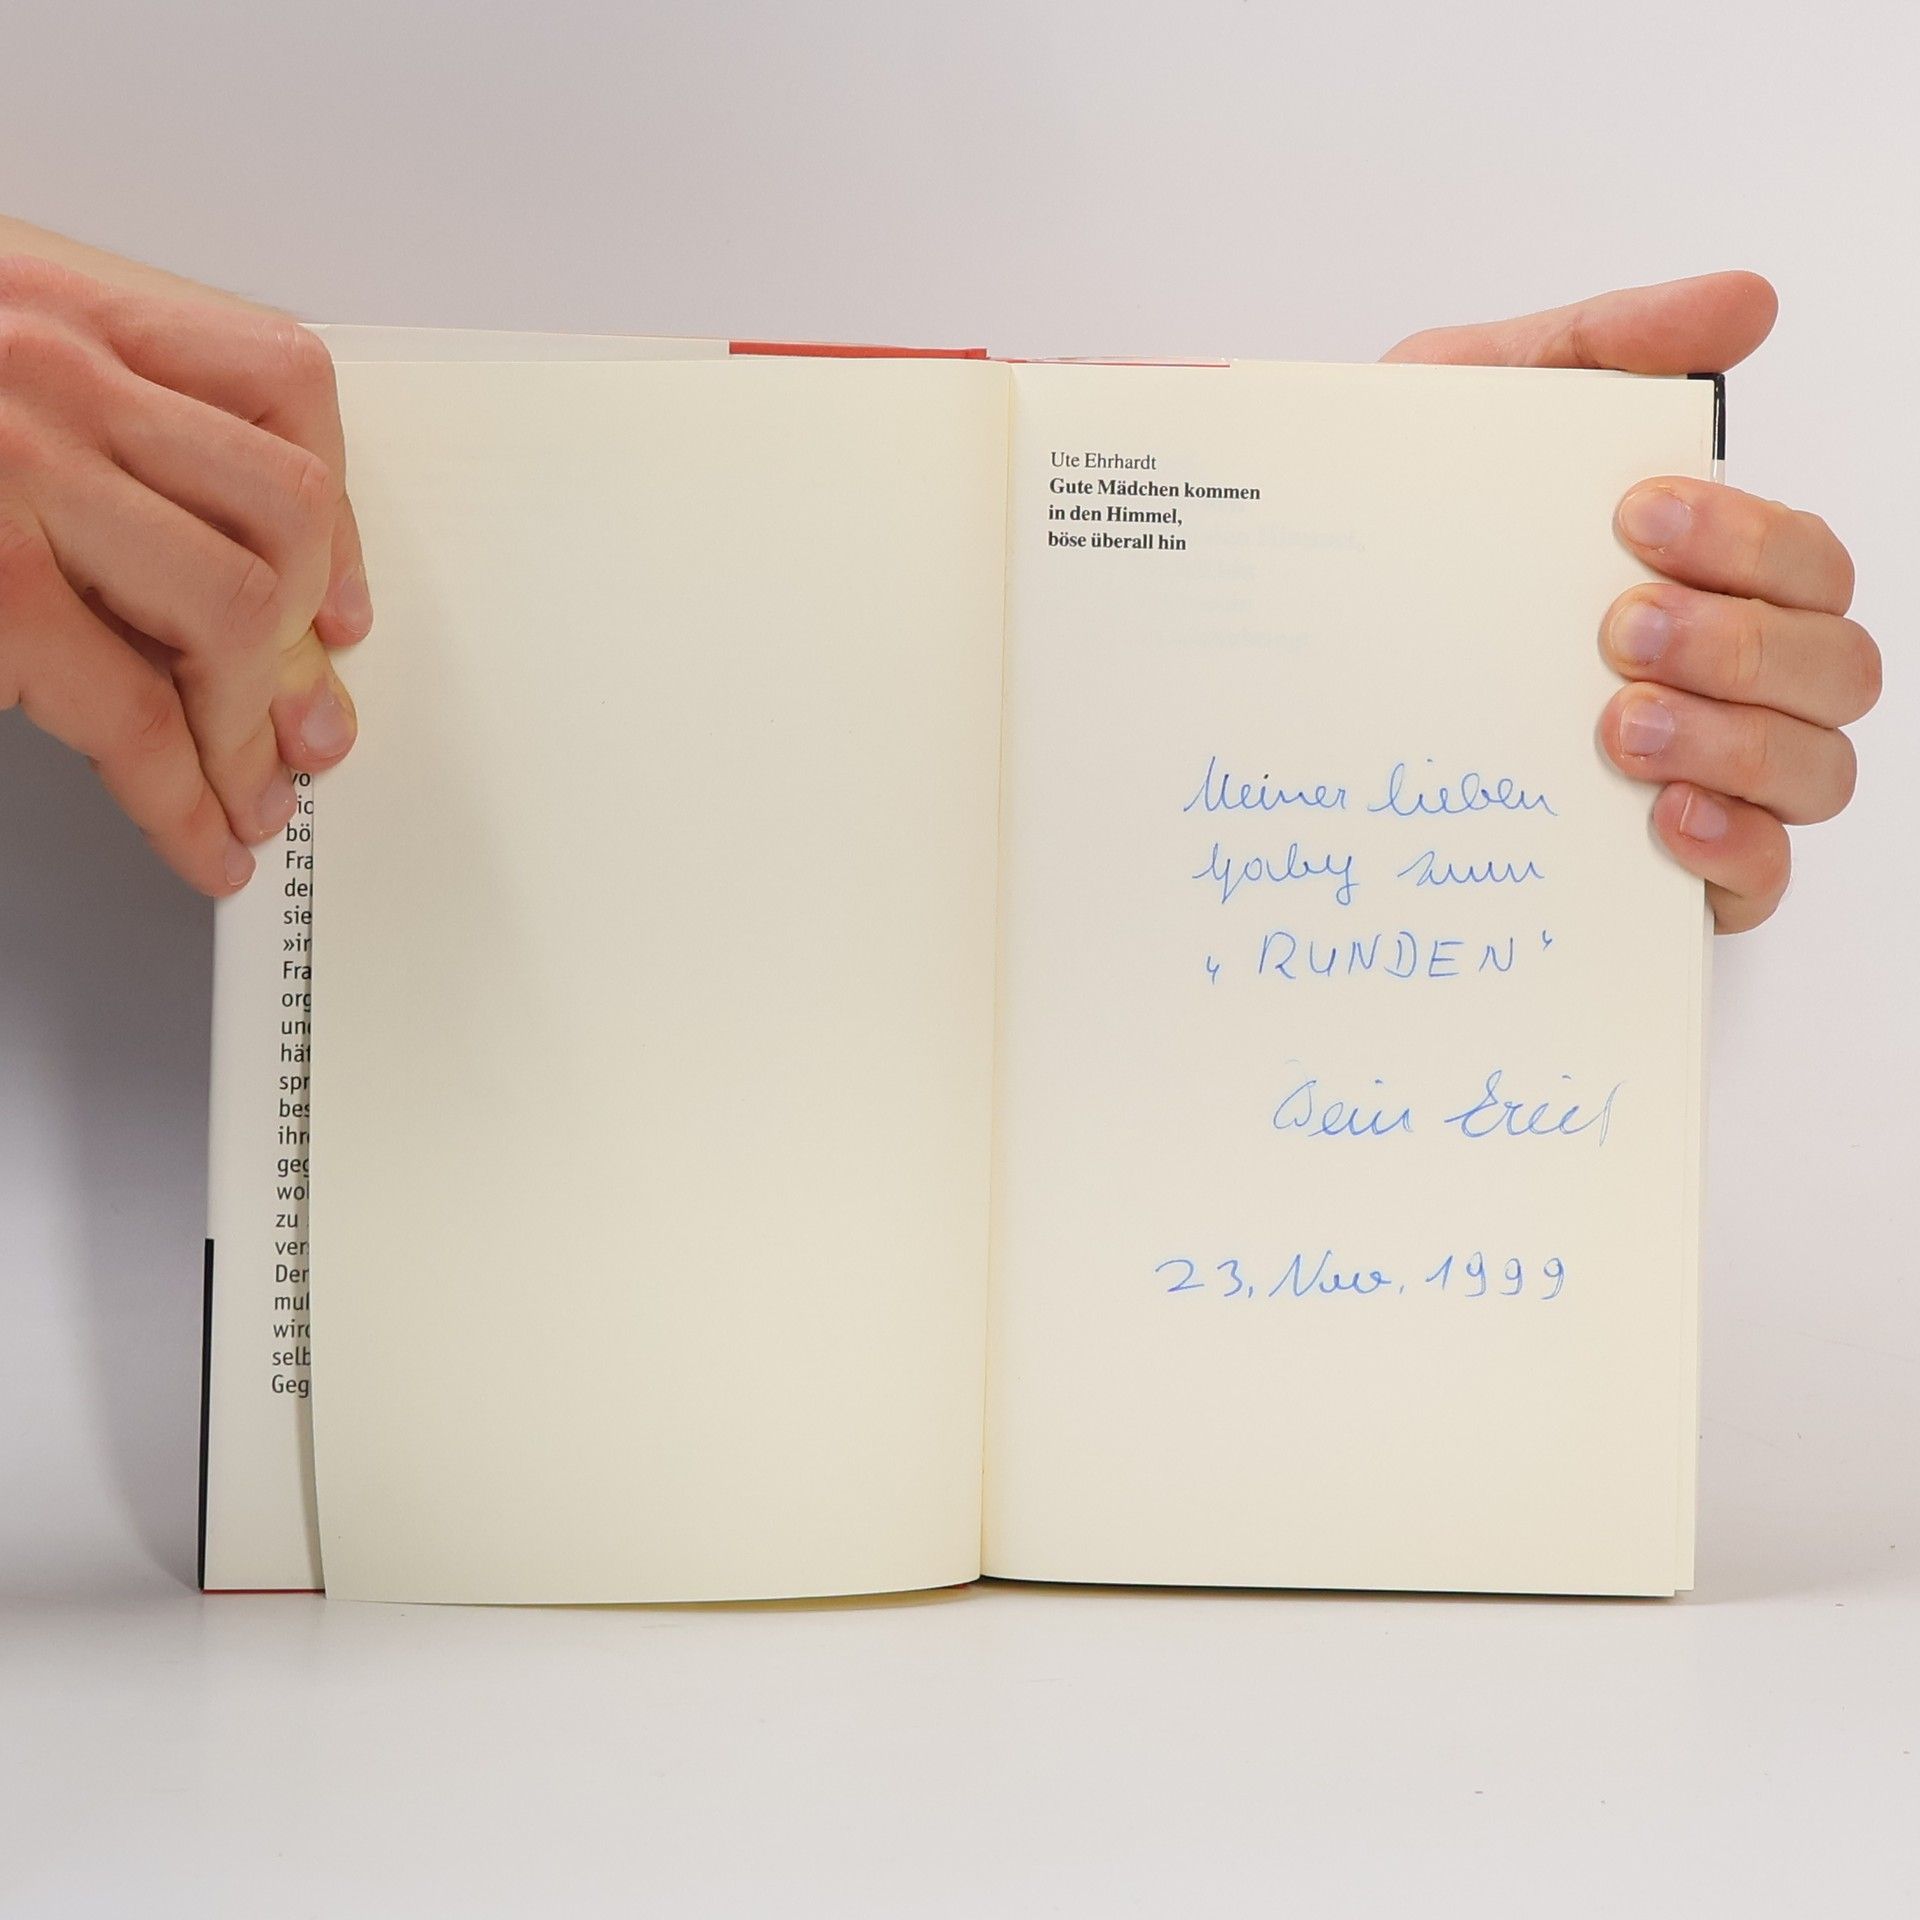 bö
Fra
der
sie
»in
Fra
org
und
hät
spr
bes
ihre
geg
wol
zu
ver
Der
mul
wird
selb
Geg
Ute Ehrhardt
Gute Mädchen kommen
in den Himmel,
böse überall hin
Meiner lieben
Gaby zum
„RUNDEN“
Dein Erich
23. Nov. 1999